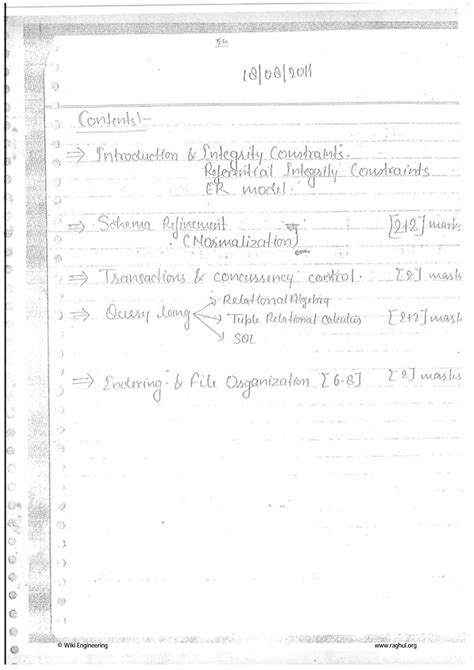 18/08/2011
Contents:-
⇒ Introduction & Integrity Constraints.
Referential Integrity Constraints
ER model.
⇒ Schema Refinement [2+2] marks
(Normalization)
⇒ Transactions & concurrency control. [2] marks
→ Relational Algebra
⇒ Query lang → Tuple Relational Calculus [2+2] marks
→ SQL
⇒ Indexing & File Organization [6-8] [2] marks
© Wiki Engineering www.raghul.org